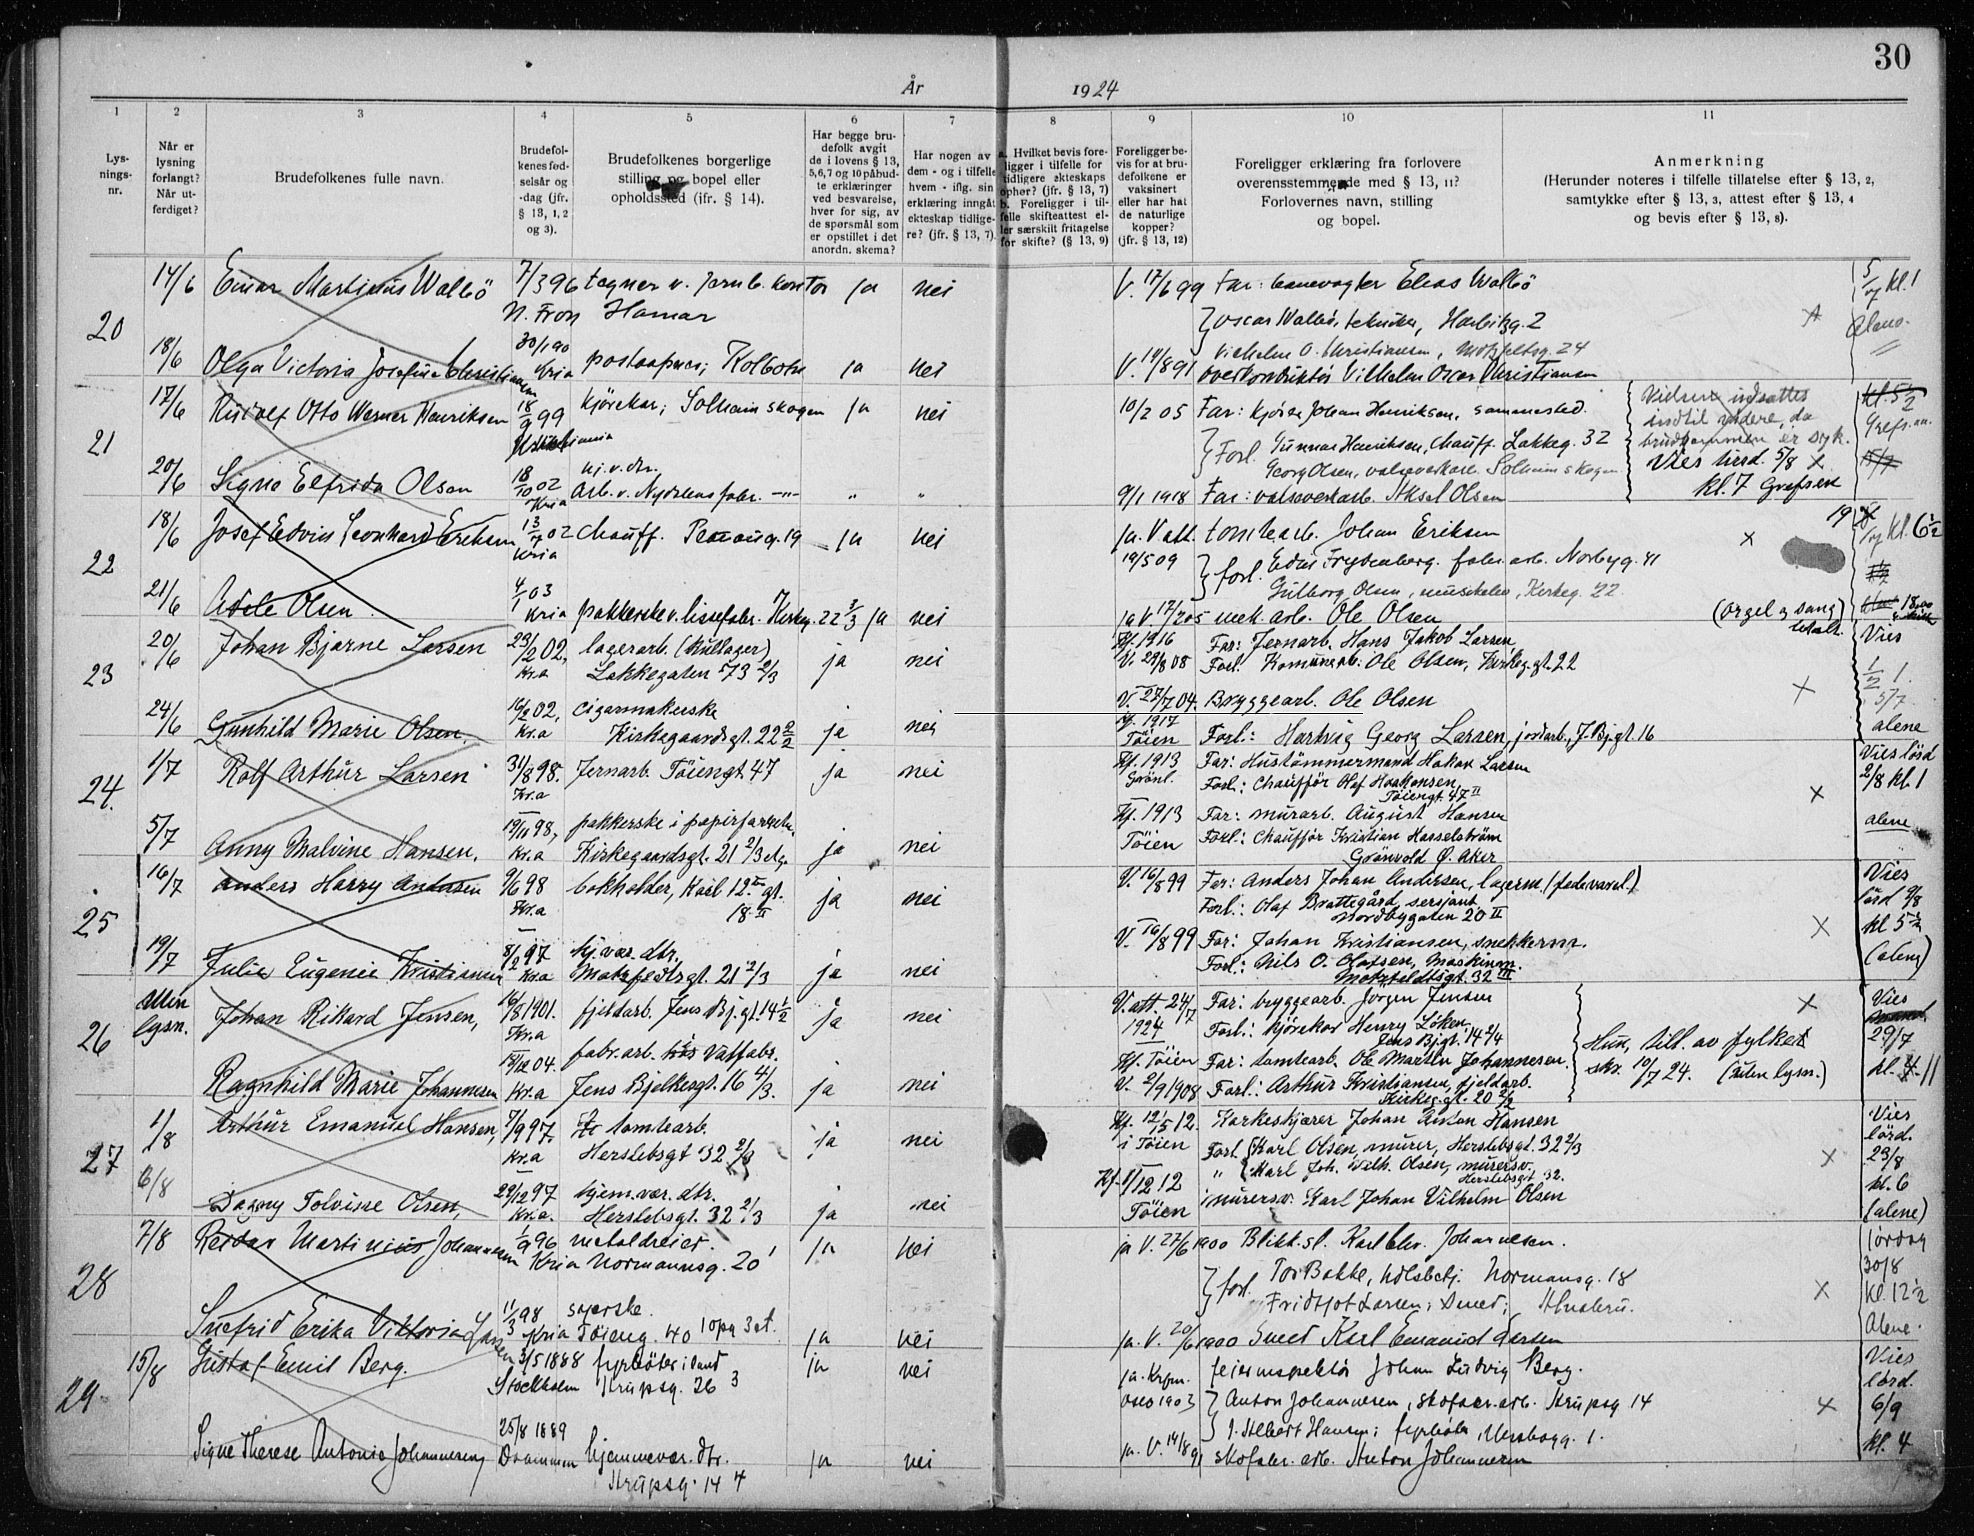 30
År 1924
1 2 3 4 5 6 7 8 9 10 11
Lysningsnr.
Når er lysning forlangt? Når utferdiget?
Brudefolkenes fulle navn.
Brudefolkenes fødselsår og -dag (jfr. § 13, 1, 2 og 3).
Brudefolkenes borgerlige stilling og bopel eller opholdssted (jfr. § 14).
Har begge brudefolk avgit de i lovens § 13, 5,6,7 og 10 påbudte erklæringer ved besvarelse, hver for sig, av de spørsmål som er opstillet i det anordn. skema?
Har nogen av dem - og i tilfelle hvem - iflg. sin erklæring inngåt ekteskap tidligere? (jfr. § 13, 7).
a. Hvilket bevis foreligger i tilfelle for tidligere ekteskaps ophør? (jfr. § 13, 7) b. Foreligger i tilfelle skifteattest eller særskilt fritagelse for skifte? (§ 13, 9)
Foreligger bevis for at brudefolkene er vaksinert eller har hat de naturlige kopper? (jfr. § 13, 12)
Foreligger erklæring fra forlovere overensstemmende med § 13, 11? Forlovernes navn, stilling og bopel.
Anmerkning
(Herunder noteres i tilfelle tillatelse efter § 13, 2, samtykke efter § 13, 3, attest efter § 13, 4 og bevis efter § 13, 8).
20 14/6 Einar Martinius Walbö 7/3 96 tegner v. Jernb. kontor ja nei V. 17/6 99 Far: banevogter Elias Walbö 5/7 kl. 1
N. Fron Hamar Oscar Walbö, tekniker, Harbitzg. 2 Alene
Vilhelm O. Christiansen, Motzfeltsg. 24
18/6 Olga Victoria Josefine Christiansen 30/1 90 Kria ja nei V. 14/8 91 Overkonduktör Vilhelm Oscar Christiansen
21 17/6 Rudolf Otto Werner Henriksen 18/9 99 kjörekar; Solheim skogen ja nei 10/2 05 Far: kjörek. Johan Henriksen, sammested. Vielsen indsattes indtil videre, da brudgommen er syk.
Forl. Gunnar Henriksen, Chauff. Lakkeg. 32
Georg Olsen, valseverksarb. Solheim skogen Vies lörd. 5/8
20/6 Signe Elfrida Olsen 18/10 02 Kria hj. v. dtr. Arb. v. Nydalens fabr. -"- " " 9/1 1918 Far: valseverkarb. Aksel Olsen kl. 7 Grefsen
22 18/6 Josef Edvin Leonhard Eriksen 13/7 02 Kria Chauff. ja nei ja. V att. tomtearb. Johan Eriksen 19/7 kl. 6 1/2
19/5 09 forl. Frydenberg. fabr. arb. Norbyg. 41
Gulborg Olsen, Kirkeg. 22
21/6 Adele Olsen 4/1 03 Kria pakkerske v. lissefabr. Kirkeg. 22 3/3 ja nei ja V 17/2 05 mek. arb. Ole Olsen (orgel og sang) betalt.
23 20/6 Johan Bjarne Larsen 23/2 02, Kr.a lagerarb. (kullager) Lakkegaten 73 2/3 ja nei Kf. 1916 V. 29/8 08 Far: Jernarb. Hans Jakob Larsen Vies
Forl: Komunearb: Ole Olsen, Kirkeg. gt. 22
24/6 Gunhild Marie Olsen, 16/2 02, Kr.a cigarmakerske Kirkegaardsgt. 22 2/2 ja nei V. 27/7 04. Kf. 1917 Töien Bryggearb. Ole Olsen 5/7 alene
Forl.: Hartvig Georg Larsen, jordarb., J. Bj.gt. 16
24. 1/7 Rolf Arthur Larsen 31/8 98. Kr.a Jernarb. Töiengt. 47 ja nei Kf. 1913 Grönl. Far: Hustömmermand Hakon Larsen Vies lörd 2/8 kl. 1
Forl.: Chaufför Olaf Haakonsen, Töiengt. 47 II
5/7 Anny Malvine Hansen, 19/11 98, Kr.a pakkerske i papirfor. Kirkegaardsgt. 21 2/3 etg. ja nei Kf. 1913 Töien Far: murarb. August Hansen alene
Forl: Chaufför Kristian Hasselström Grönvold Ö. Aker
25 16/7 Anders Harry Andersen 9/6 98 Kr.a bokholder, Karl 12. gt. 18 II ja nei V. 16/8 99 Far: Anders Johan Andersen, lagerm. (fedevarel.) Vies lörd 9/8
Forl.: Olaf Brattegård, sersjant Nordbygaten 20 II kl 5 1/2
19/7 Julie Eugenie Kristiansen 8/2 97 Kr.a hj. vær. dtr. Motzfeldtsgt. 21 2/3 ja nei V. 16/8 99 Far: Johan Kristiansen, snekkerm. (alene)
Forl.: Nils O. Olafsen, Maskinm. Motzfeldtsgt. 32 III
26 uten lysn. Johan Rikard Jensen, 16/8 1901. Kr.a fjeldarb. Jens Bj. gt. 14 1/2 ja nei V. att. 24/7 1924 Far: bryggearb. Jörgen Jensen Vies 29/7
Forl.: Kjörekar Henry Löken Jens Bj.gt. 14 2/4 Hun, till. av fylket skr. 10/7 24. (uten lysn.) kl. 11
Ragnhild Marie Johannesen 19/12 04. Kr.a fabr. arb. Vattfabr. Jens Bjelkesgt. 16 4/3. ja nei Kf. Töien V. 2/9 1908 Far: tomtearb. Ole Martin Johannesen.
Forl: Arthur Kristiansen, fjeldarb. Kirkeg. gt. 20 2/2
27 1/8 Arthur Emanuel Hansen, 7/9 97. Kr.a tomtearb. Herslebsgt 32 2/3 ja nei Kf. 12/5 12. i Töien Korkeskjærer Johan Anton Hansen Vies lörd. 23/8
Forl Karl Olsen, murer, Herslebsgt. 32 2/3
" Karl Joh. Wilh. Olsen, murersv. Herslebsgt 32.
6/8 Dagny Tolvine Olsen, 29/12 97 Kr.a. hjem. vær. dtr. Herslebsgt. 32 2/3 ja nei Kf. 1/12 12 Töien murersv. Karl Johan Vilhelm Olsen kl. 6 (alene)
28 7/8 Reidar Martinius Johannesen 1/9 96 Kria metaldreier. Normannsg. 20 ja nei ja V. 27/6 1900 Blikksl. Karl Chr. Johannesen. lördag 30/8
forl. Tor Bakke, Normansg. 18 kl. 12 1/2
Fridtjof Larsen; Smed; Alnabru.
Snefrid Erika Viktoria Larsen 11/3 98 Kria syerske. Töieng. 40 1 opg 3 et. ja nei ja. V. 20/6 1900 Smed Karl Emanuel Larsen Alene.
29 15/8 Gustaf Emil Berg. 3/5 1888 Stockholm fyrböter Krupsg. 26 3 ja nei ja. Krfm. Oslo 1903 feierinspektör Johan Ludvig Berg. Vies lörd.
Anton Johannesen, skofabr. arb. Krupsg 14 6/9
J. Albert Hansen; fyrböter, 1.
Signe Therese Antonie Johannesen 25/8 1889 Drammen hjemmevær. dtr. Krupsg. 14 4 ja nei ja. V. 14/8 91 skofabr. arb. Anton Johannesen kl. 4